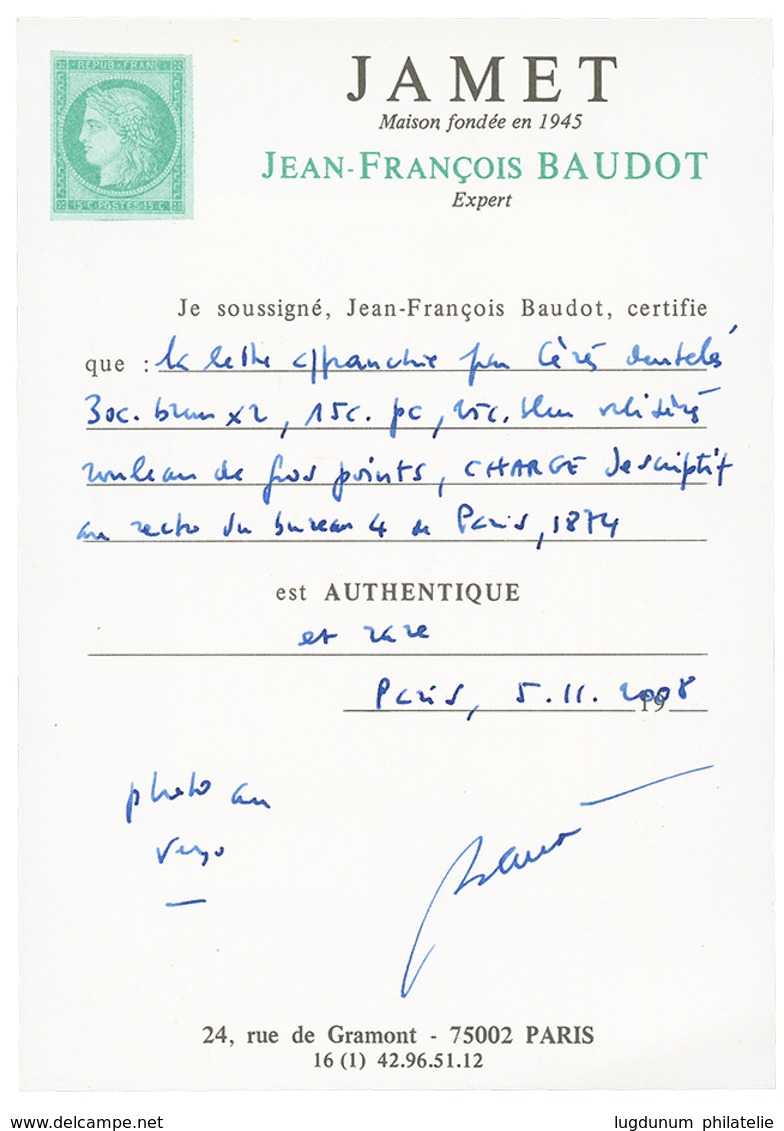 REPUB·FRANC·
15·C·POSTES·15·C·
JAMET
Maison fondée en 1945
JEAN-FRANÇOIS BAUDOT
Expert
Je soussigné, Jean-François Baudot, certifie
que : la lettre affranchie par Cérès dentelés
30c. brun x2, 15c. pc, 25c. bleu oblitérés
rouleau de gros points, CHARGE descriptif
au recto du bureau 4 de Paris, 1874
est AUTHENTIQUE
et rare
Paris, 5.11.2008
19
photo au
verso
24, rue de Gramont - 75002 PARIS
16 (1) 42.96.51.12
www.delcampe.net
lugdunum philatelie